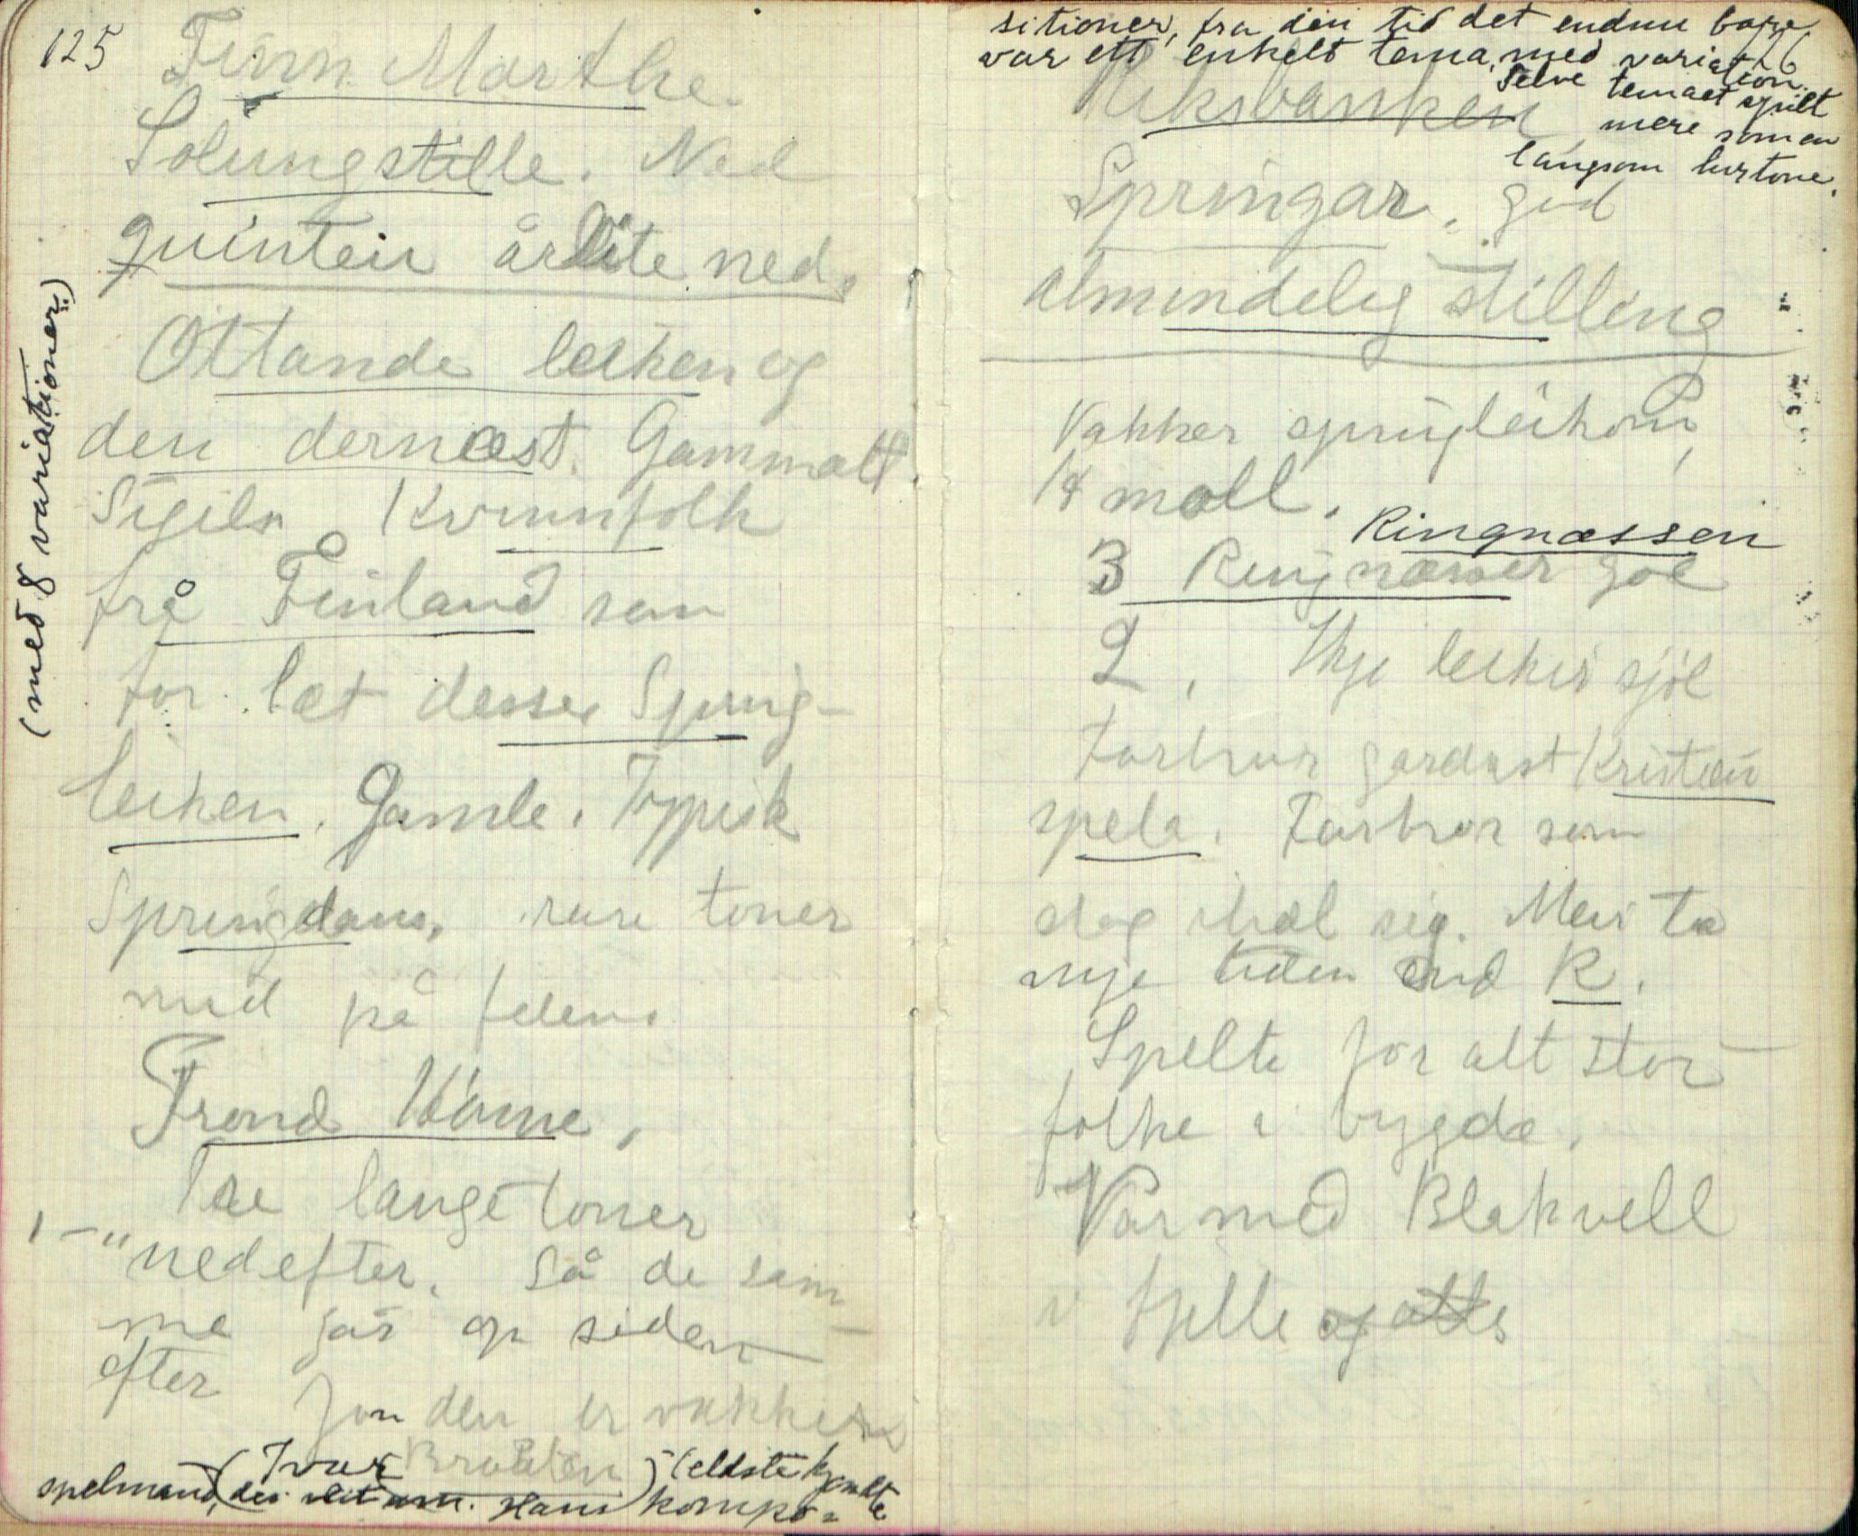 125
Finn Marthe.
Solungstille. Ned
quinten år lite ned.
Ottande leiken og
den dernæst. Gammalt.
Sigila. Kvinnfolk
frå Finland som
for læt desse Spring-
leiken. Gamle. Typisk
Springdans. rare toner
med på felen.
(med 8 variationer)
Trond
Tæ lange toner
nedefter. Så de sam-
me går op siden
efter
Jon den er vakker
(Ivar Braaten) (eldste kjendte
spelmand, Hans kompo-
sitioner, fra den tid det endnu bare
var ett enkelt tema med variation.
Selve temaet spilt
mere som en
langsom lurtone.
126
Riksbanken
Springar. god
almindelig stilling
Vakker springleik
moll.
Ringnæssen
3 Ringnæsser gol
2. Ikje leikir sjøl
Farbror gardast Kristian
spela. Farbror som
slog ihæl sig. Men ta
nye tiden end K.
Spelte for alt stor
folke i bygde.
Var med Blakvell
i fjelle og åtte